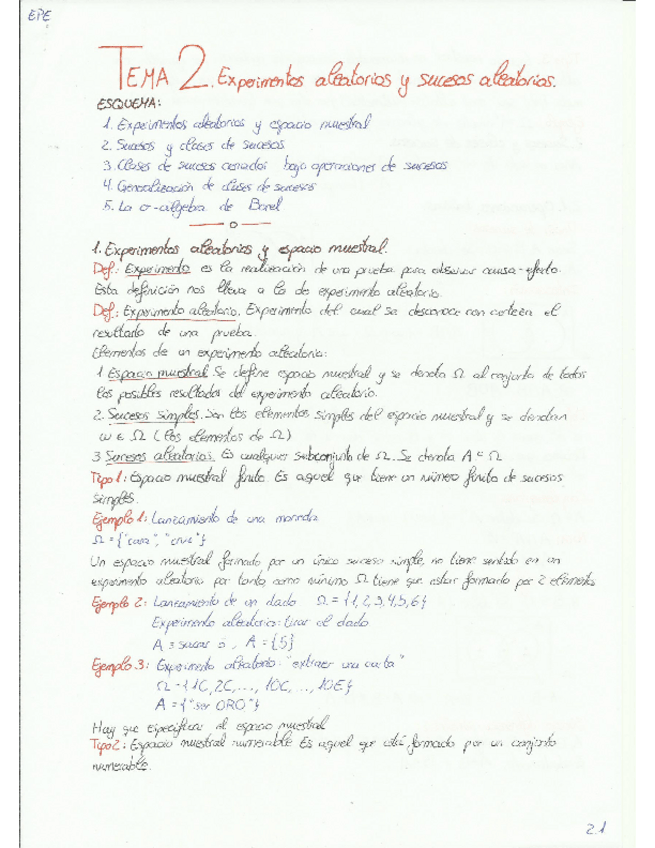 EPE
TEMA 2. Experimentos aleatorios y sucesos aleatorios.
ESQUEMA:
1. Experimentos aleatorios y espacio muestral
2. Sucesos y clases de sucesos
3. Clases de sucesos cerrados bajo operaciones de sucesos
4. Generalización de clases de sucesos
5. La σ-álgebra de Borel
1. Experimentos aleatorios y espacio muestral.
Def.: Experimento es la realización de una prueba para observar causa-efecto.
Esta definición nos lleva a la de experimento aleatorio.
Def.: Experimento aleatorio. Experimento del cual se desconoce con certeza el
resultado de una prueba.
Elementos de un experimento aleatorio:
1. Espacio muestral. Se define espacio muestral y se denota Ω al conjunto de todos
los posibles resultados del experimento aleatorio.
2. Sucesos simples. Son los elementos simples del espacio muestral y se denotan
ω ∈ Ω (los elementos de Ω)
3 Sucesos aleatorios. Es cualquier subconjunto de Ω. Se denota A ⊂ Ω
Tipo 1: Espacio muestral finito. Es aquel que tiene un número finito de sucesos
simples.
Ejemplo 1: Lanzamiento de una moneda
Ω = {"cara", "cruz"}
Un espacio muestral formado por un único suceso simple, no tiene sentido en un
experimento aleatorio por tanto, como mínimo Ω tiene que estar formado por 2 elementos
Ejemplo 2: Lanzamiento de un dado Ω = {1,2,3,4,5,6}
Experimento aleatorio: tirar el dado
A ≡ sacar 5, A = {5}
Ejemplo 3: Experimento aleatorio: "extraer una carta"
Ω = {1C, 2C, ..., 10C, ..., 10E}
A = {"ser ORO"}
Hay que especificar el espacio muestral
Tipo 2: Espacio muestral numerable. Es aquel que está formado por un conjunto
numerable.
2.1